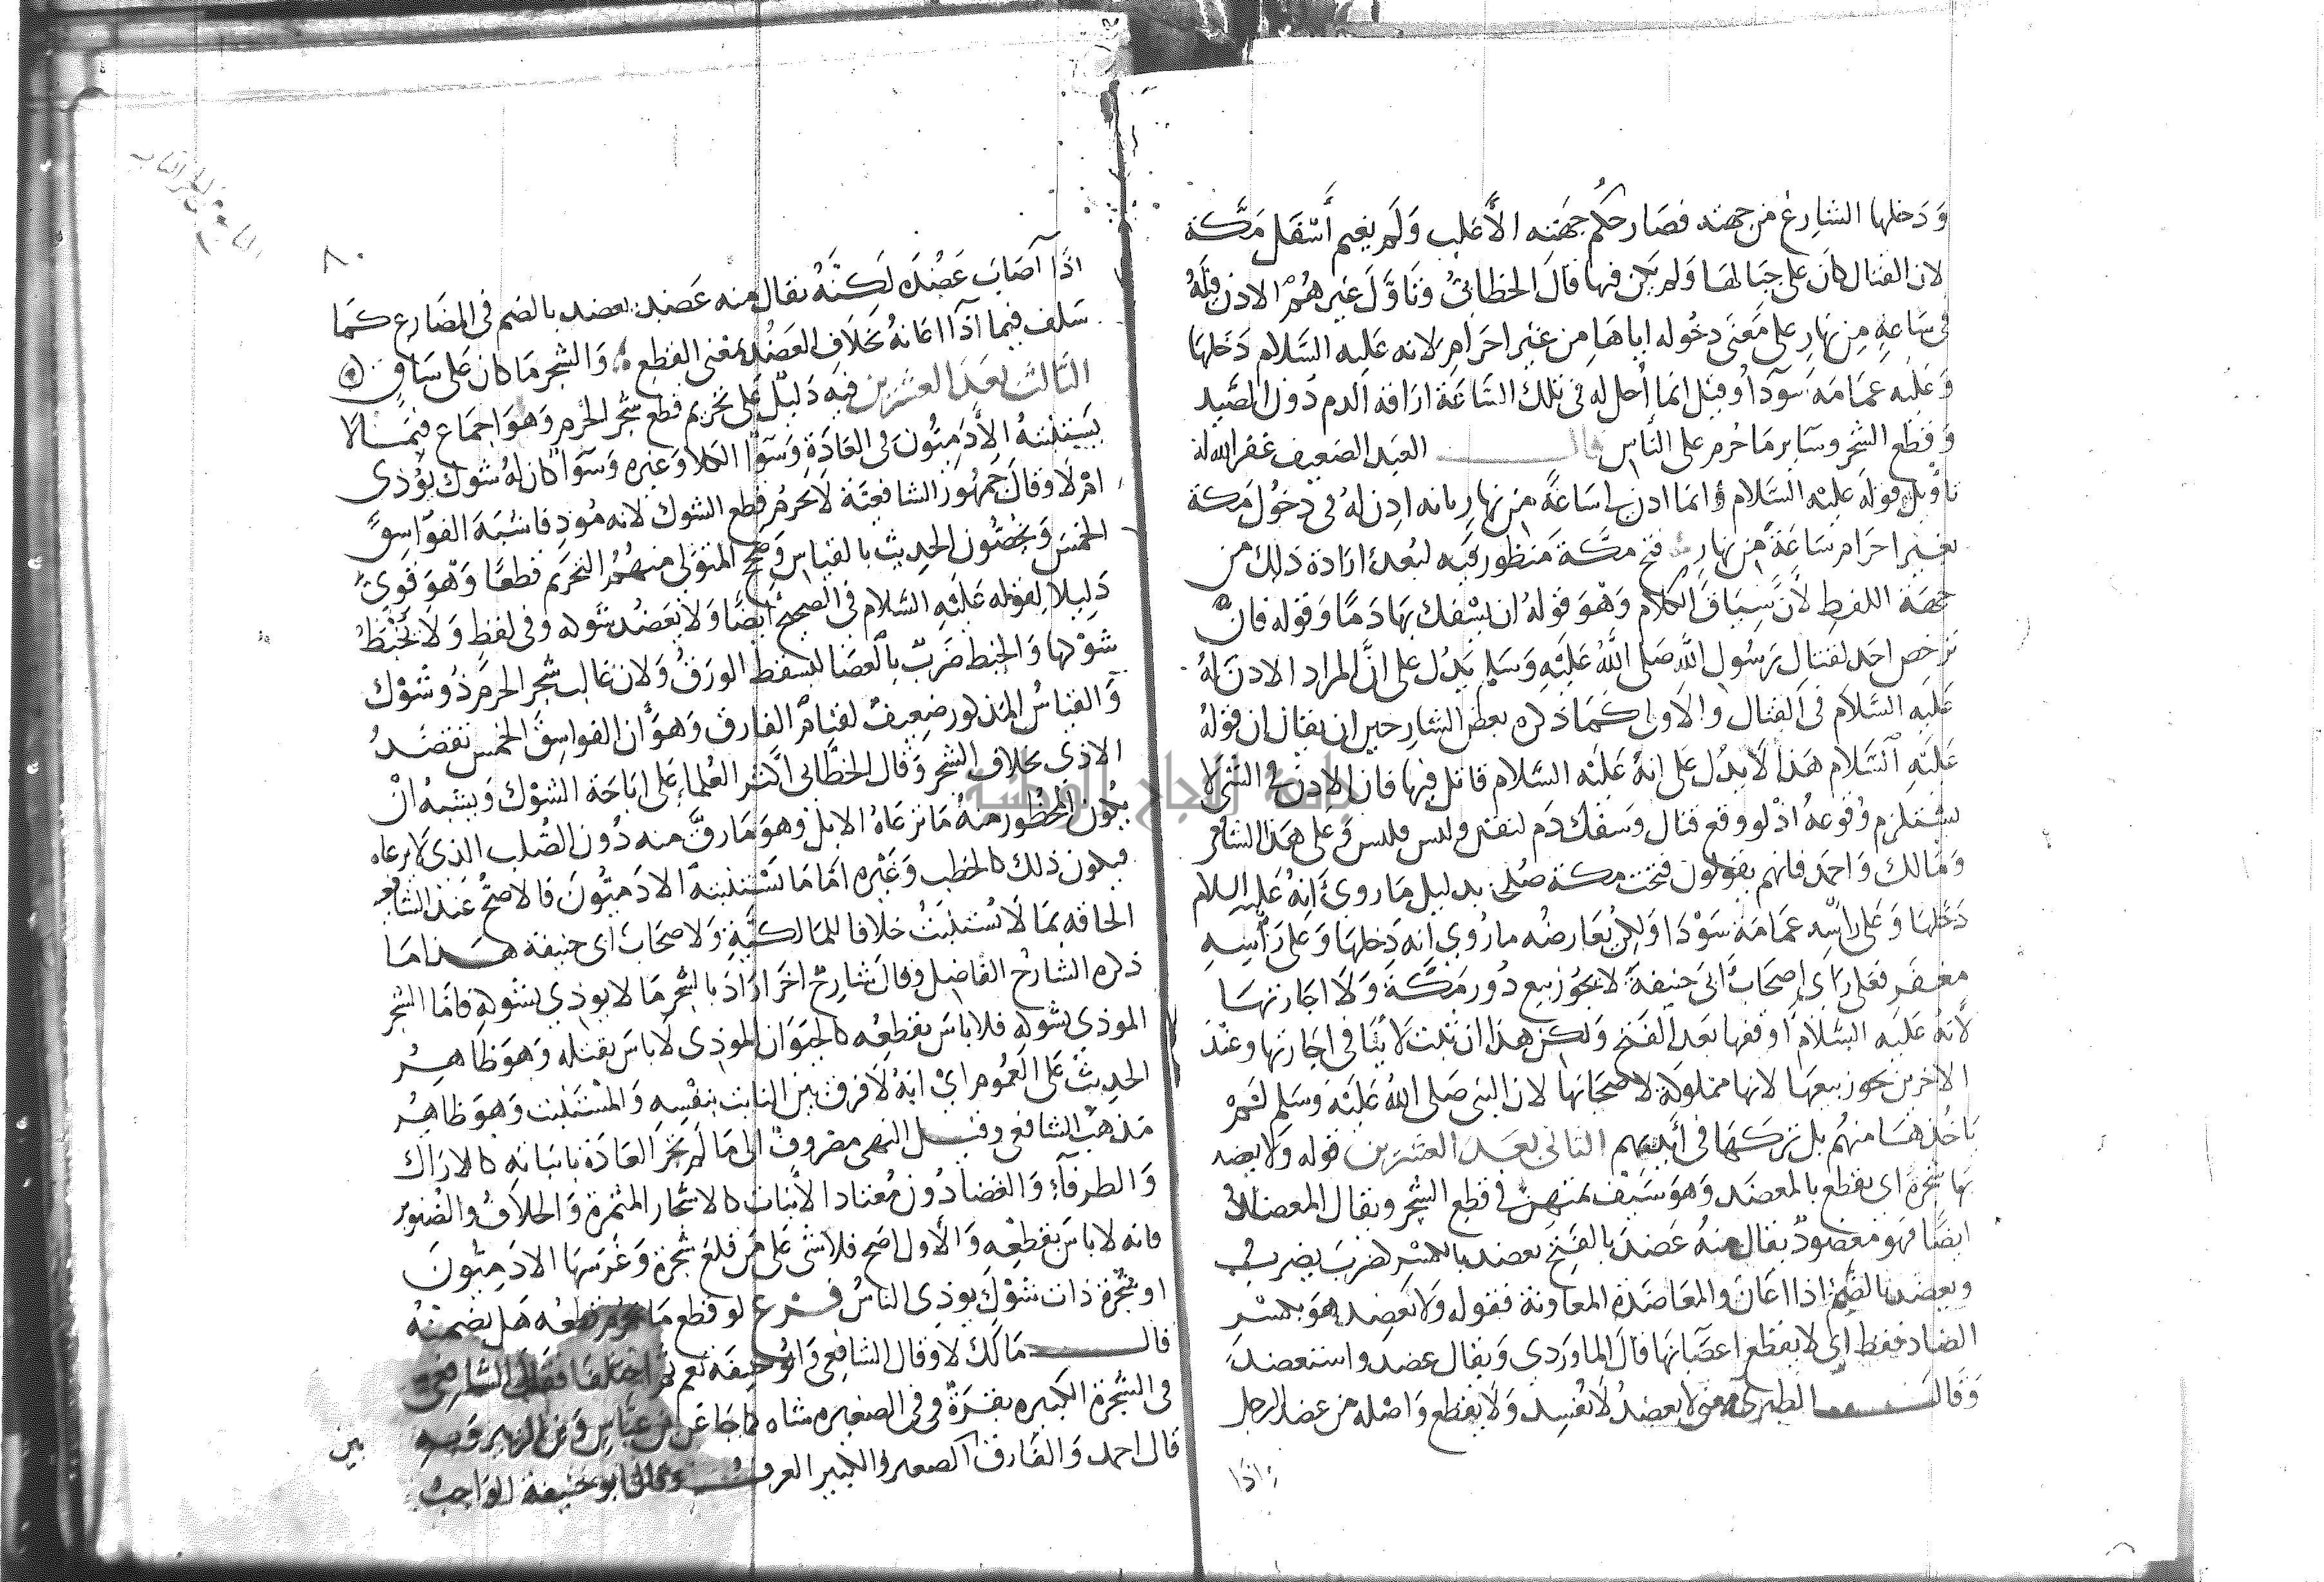 ودخلها الشارع من جهته فصار حكم جهته الأغلب ولم يعم أسفل مكة
لان القتال كان على جبالها ولم يكن فيها قال الخطابي وتأول غيرهم الاذن فيله
في ساعة من نهار على معنى دخوله اياها من غير احرام لانه عليه السلام دخلها
وعليه عمامه سودا وقيل انما احل له في تلك الساعة اراقة الدم دون الصيد
وقطع الشجر وساير ما حرم على الناس قال العبد الضعيف غفر الله له
تاويل قوله عليه السلام وانما اذن لي ساعة من نهار بانه اذن له في دخول مكة
بغير احرام ساعة من نهار فتح مكة منظور فيه لبعد ارادة ذلك من
جهة اللفظ لأن سياق الكلام وهو قوله ان يسفك بها دما وقوله فان
ترخص احد لقتال رسول الله صلى الله عليه وسلم يدل على ان المراد الاذن له
عليه السلام في القتال والاولى كما ذكره بعض الشارحين ان يقال ان قوله
عليه السلام هذا لا يدل على انه عليه السلام قاتل فيها فان الاذن في الشي لا
يستلزم وقوعه اذ لو وقع قتال وسفك دم لنقل وليس فليس وعلى هذا الشافعي
ومالك واحمد فانهم يقولون فتحت مكة صلحا بدليل ما روي انه عليه السلام
دخلها وعلى راسه عمامة سودا ولكن يعارضه ما روي انه دخلها وعلى رأسه
مغفر فعلى راي اصحاب ابي حنيفة لا يجوز بيع دور مكة ولا اجارتها
لأنه عليه السلام اوقفها بعد الفتح ولكن هذا ان ثبت لا ينافي اجارتها وعند
الاخرين يجوز بيعها لانها مملوكة لاصحابها لان النبي صلى الله عليه وسلم لم
ياخذها منهم بل تركها في أيديهم الثاني بعد العشرين قوله ولا يعضد
بها شجرة اي يقطع بالمعضد وهو سيف يمتهن في قطع الشجر ويقال المعضاد
ايضا فهو معضود يقال منه عضد بالفتح يعضد بالكسر كضرب يضرب
ويعضد بالضم اذا اعان والمعاضدة المعاونة فقوله ولا يعضد هو بكسر
الضاد فقط اي لا يقطع اعصانها قال الماوردي ويقال عضد واستعضد
وقال الطبري معنى لا يعضد لا يفسد ولا يقطع واصله من عضد الرجل
اذا
٨٠
اذا أصاب عضده لكنه يقال منه عضد يعضد بالضم في المضارع كما
سلف فيما اذا اعانه بخلاف العضد بمعنى القطع والشجر ما كان على ساق
الثالث بعد العشرين فيه دليل على تحريم قطع شجر الحرم وهو اجماع فيما لا
يستنبته الأدميون في العادة وسوآ الكلا وغيره وسوآ كان له شوك يؤذي
ام لا وقال جمهور الشافعية لا يحرم قطع الشوك لانه موذ فاشبه الفواسق
الخمس ويخصون الحديث بالقياس وصحح المتولي منهم التحريم قطعا وهو قوي
دليلا لقوله عليه السلام في الصحيح أيضا ولا يعضد شوكه وفي لفظ ولا يخبط
شوكها والخبط ضرب بالعصا ليسقط الورق ولان غالب شجر الحرم ذو شوك
والقياس المذكور ضعيف لقيام الفارق وهو أن الفواسق الخمس تقصد
الاذى بخلاف الشجر وقال الخطابي اكثر العلماء على اباحة الشوك ويشبه ان
يكون المحظور منه ما ترعاه الابل وهو ما رق منه دون الصلب الذي لا يرعاه
فيكون ذلك كالحطب وغيره اما ما تستنبته الادميون فالاصح عند الشافعي
الحاقه بما لا يستنبت خلافا للمالكية ولاصحاب ابي حنيفة هذا ما
ذكره الشارح الفاضل وقال شارح اخر اراد بالشجر ما لا يوذي بشوكه فاما الشجر
الموذي بشوكه فلا باس بقطعه كالحيوان الموذي لا باس بقتله وهو ظاهر
الحديث على العموم اي انه لا فرق بين النابت بنفسه والمستنبت وهو ظاهر
مذهب الشافعي وقيل النهي مصروف الى ما لم تجر العادة بانباته كالاراك
والطرفآء والغضا دون معتاد الأنبات كالاشجار المثمرة والخلاف والصنوبر
فانه لا باس بقطعه والأول اصح فلا شي على من قلع شجرة وغرسها الادميون
او شجرة ذات شوك يوذي الناس فرع لو قطع ما حرم قطعه هل يضمنه
قال مالك لا وقال الشافعي وابو حنيفة نعم ثم اختلفا فقال الشافعي
في الشجرة الكبيره بقرة وفي الصغيره شاه كما جا عن ابن عباس وابن الزبير وبه
قال احمد والفارق الصغير والكبير العرف وقال ابو حنيفة الواجب
بين